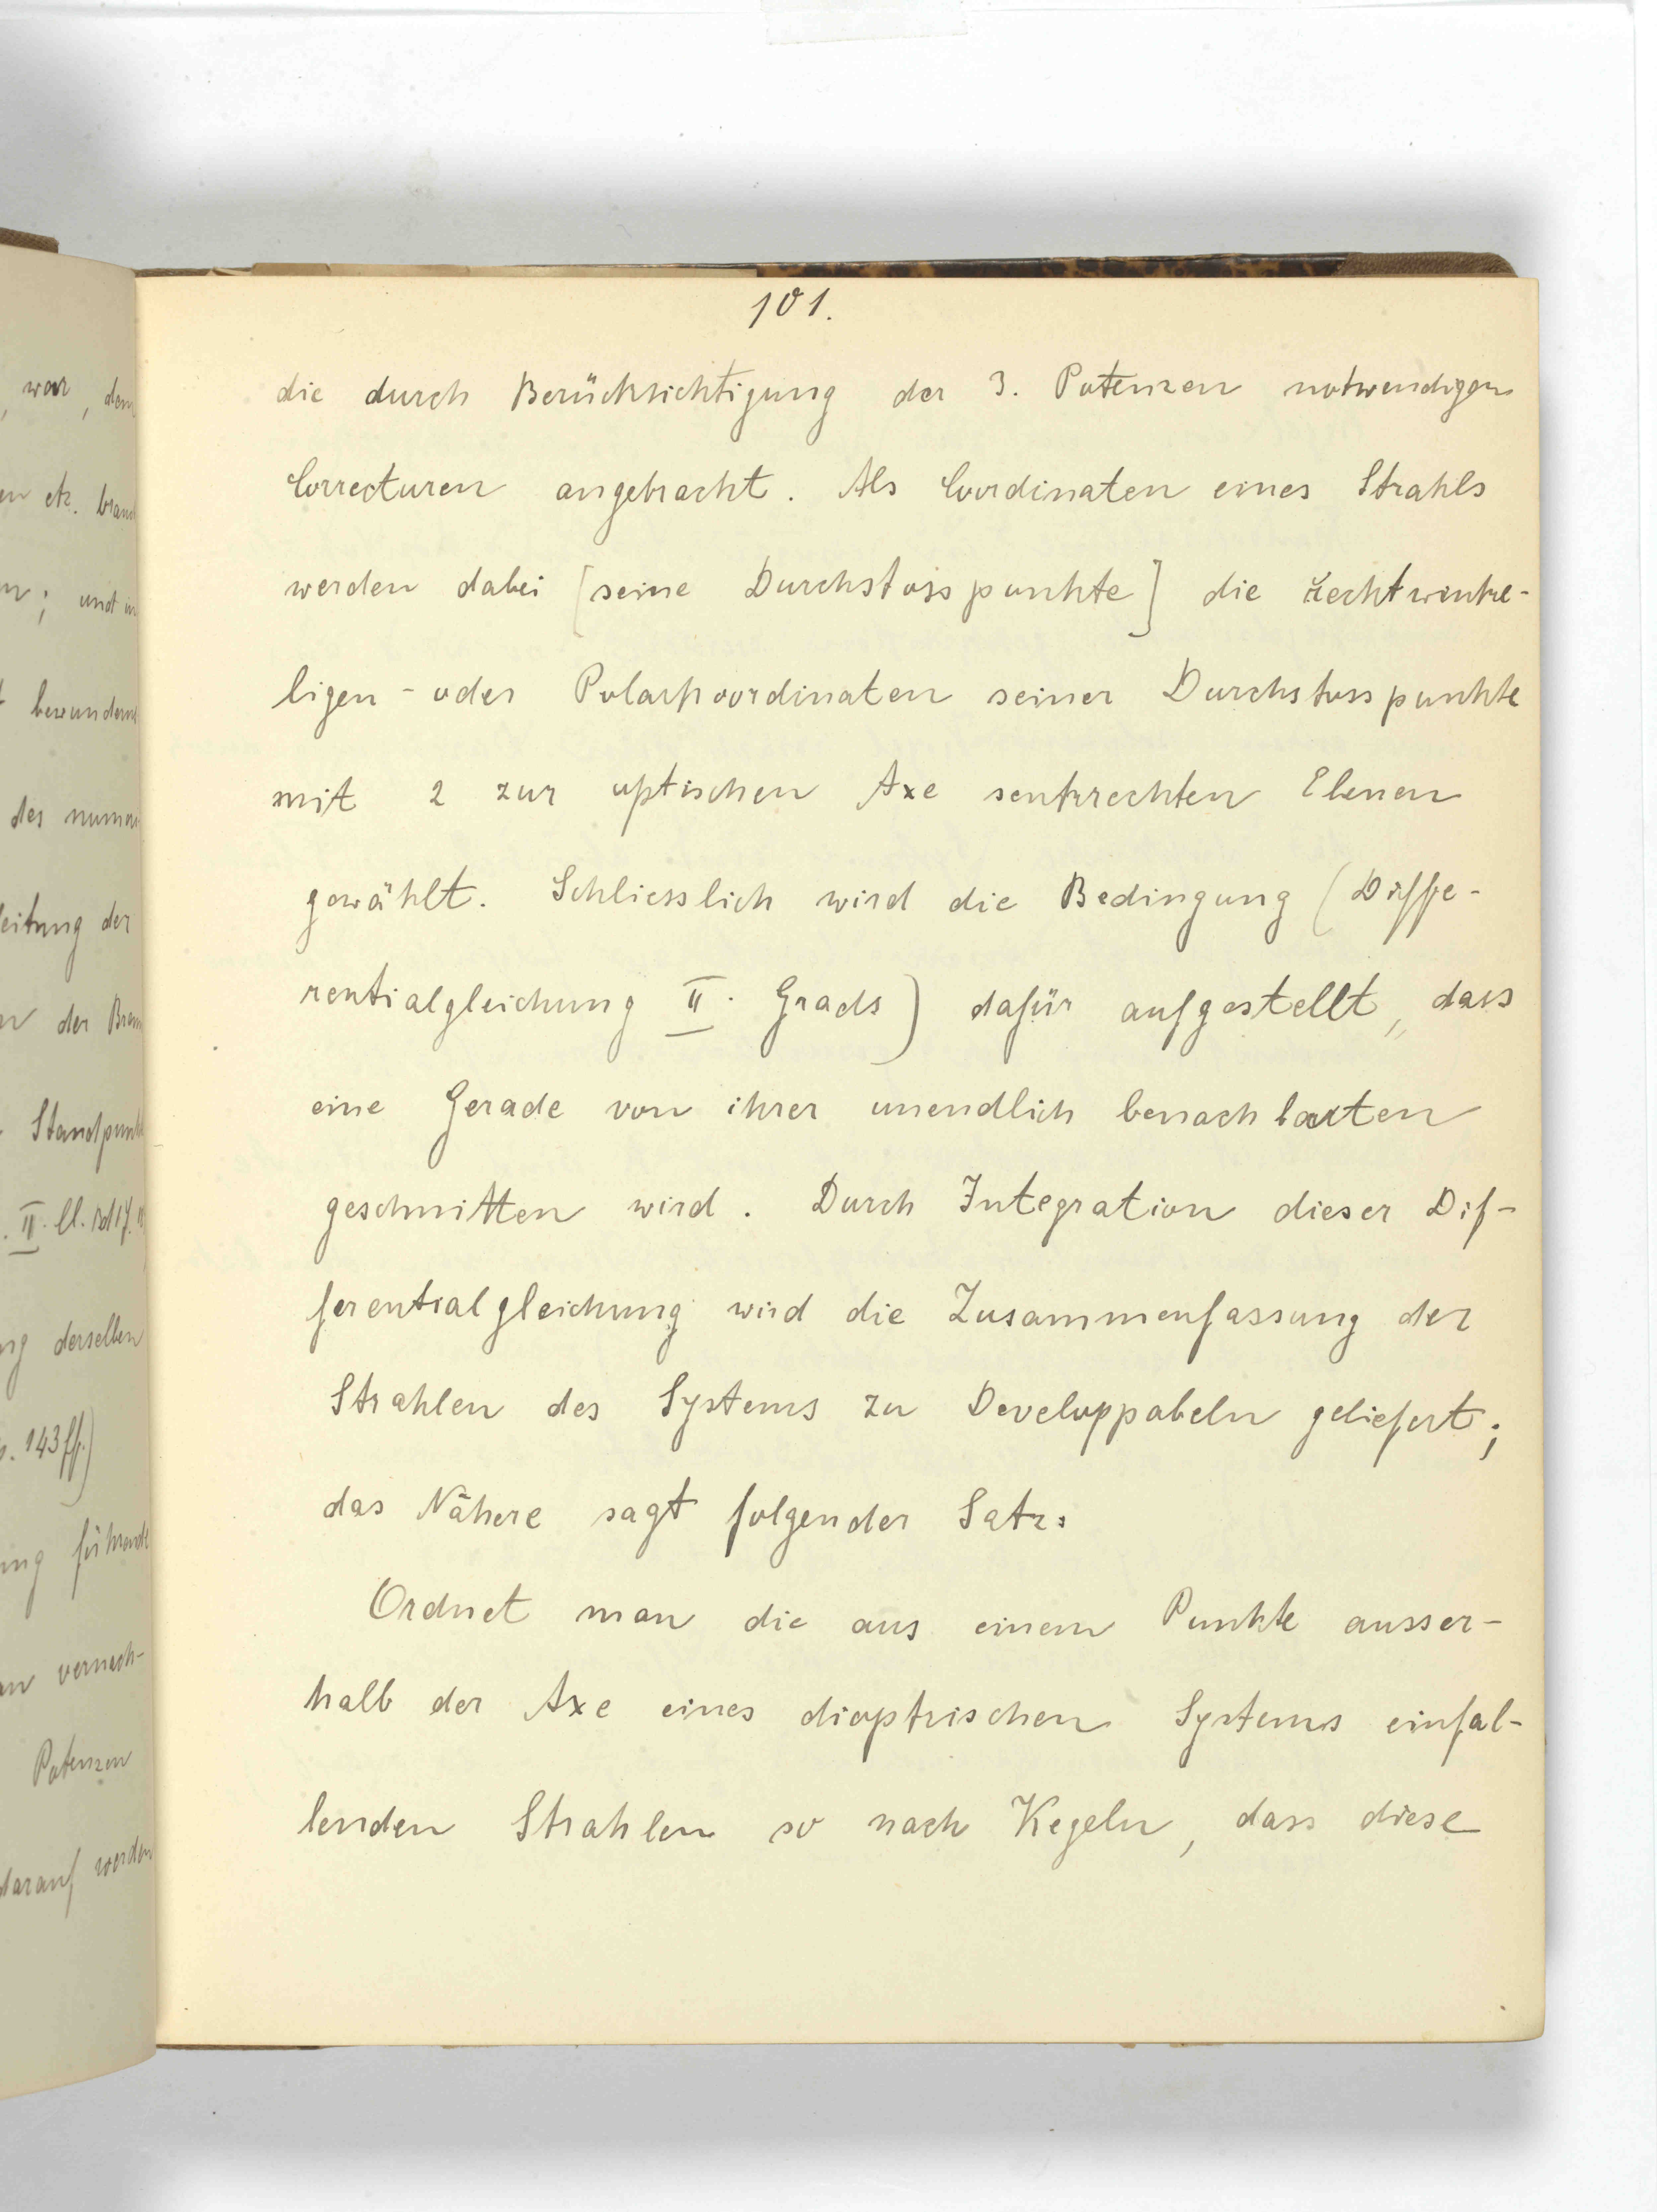 101.
die durch Berücksichtigung der 3. Potenzen notwendigen
Correcturen angebracht. Als Coordinaten eines Strahls
werden dabei [seine Durchstosspunkte] die rechtwinke-
ligen - oder Polarkoordinaten seiner Durchstosspunkte
mit 2 zur optischen Axe senkrechten Ebenen
gewählt. Schliesslich wird die Bedingung (Diffe-
rentialgleichung II. Grads) dafür aufgestellt, dass
eine Gerade von ihrer unendlich benachbarten
geschnitten wird. Durch Integration dieser Dif-
ferentialgleichung wird die Zusammenfassung der
Strahlen des Systems zu Developpabeln geliefert;
das Nähere sagt folgender Satz:
Ordnet man die aus einem Punkte ausser-
halb der Axe eines dioptrischen Systems einfal-
lenden Strahlen so nach Kegeln, dass diese
, war, dem
en etc.
; und in
des
eitung der
der
Standpunkt
II.
ng derselben
. 143 ff.)
ung führende
Potenzen
darauf werden